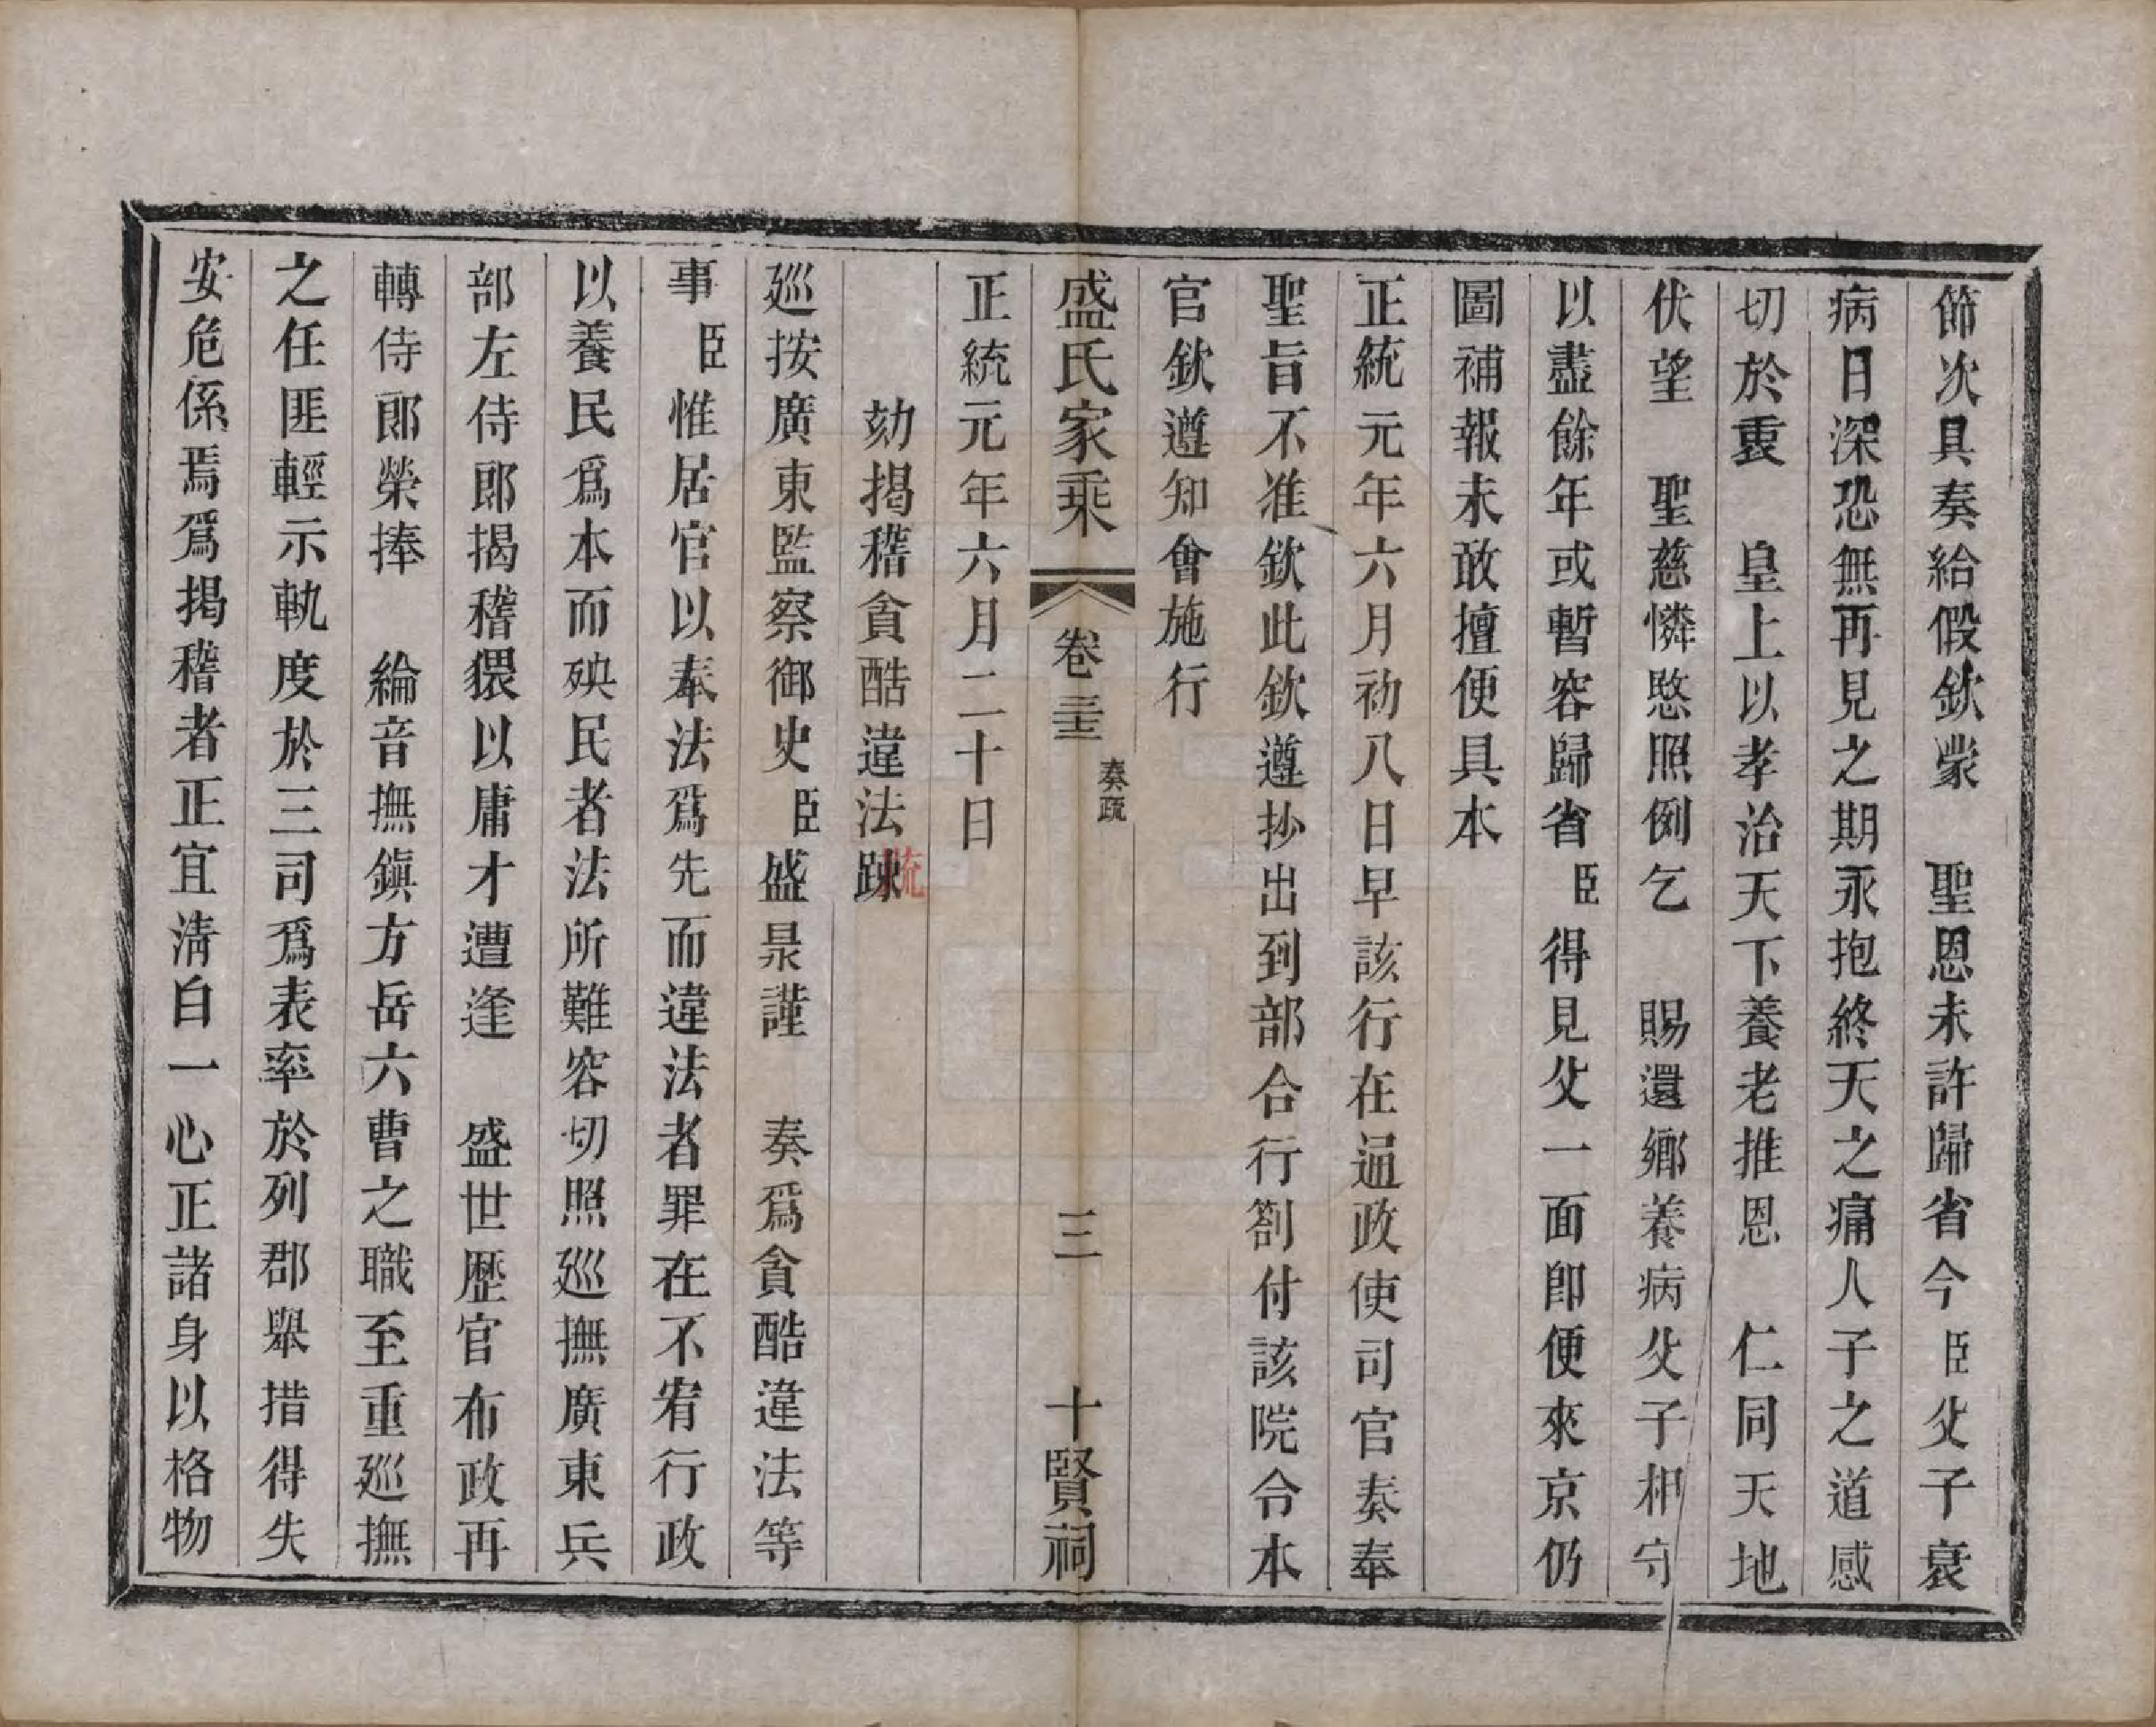 節次具奏給假欽蒙　聖恩未許歸省今臣父子衰
病日深恐無再見之期永抱終天之痛人子之道感
切於衷　皇上以孝治天下養老推恩　仁同天地
伏望　聖慈憐愍照例乞　賜還鄉養病父子相守
以盡餘年或暫容歸省臣得見父一面即便來京仍
圖補報未敢擅便具本
正統元年六月初八日早該行在通政使司官奏奉
聖旨不准欽此欽遵抄出到部合行劄付該院令本
官欽遵知會施行
正統元年六月二十日
盛氏家乘　卷三十三　奏疏　三　十賢祠
劾揭稽貪酷違法疎
疏
廵按廣東監察御史臣盛㫤謹　奏爲貪酷違法等
事臣惟居官以奉法爲先而違法者罪在不宥行政
以養民爲本而殃民者法所難容切照廵撫廣東兵
部左侍郎揭稽猥以庸才遭逢　盛世歷官布政再
轉侍郎榮捧　綸音撫鎭方岳六曹之職至重廵撫
之任匪輕示軌度於三司爲表率於列郡舉措得失
安危係焉爲揭稽者正宜淸白一心正諸身以格物